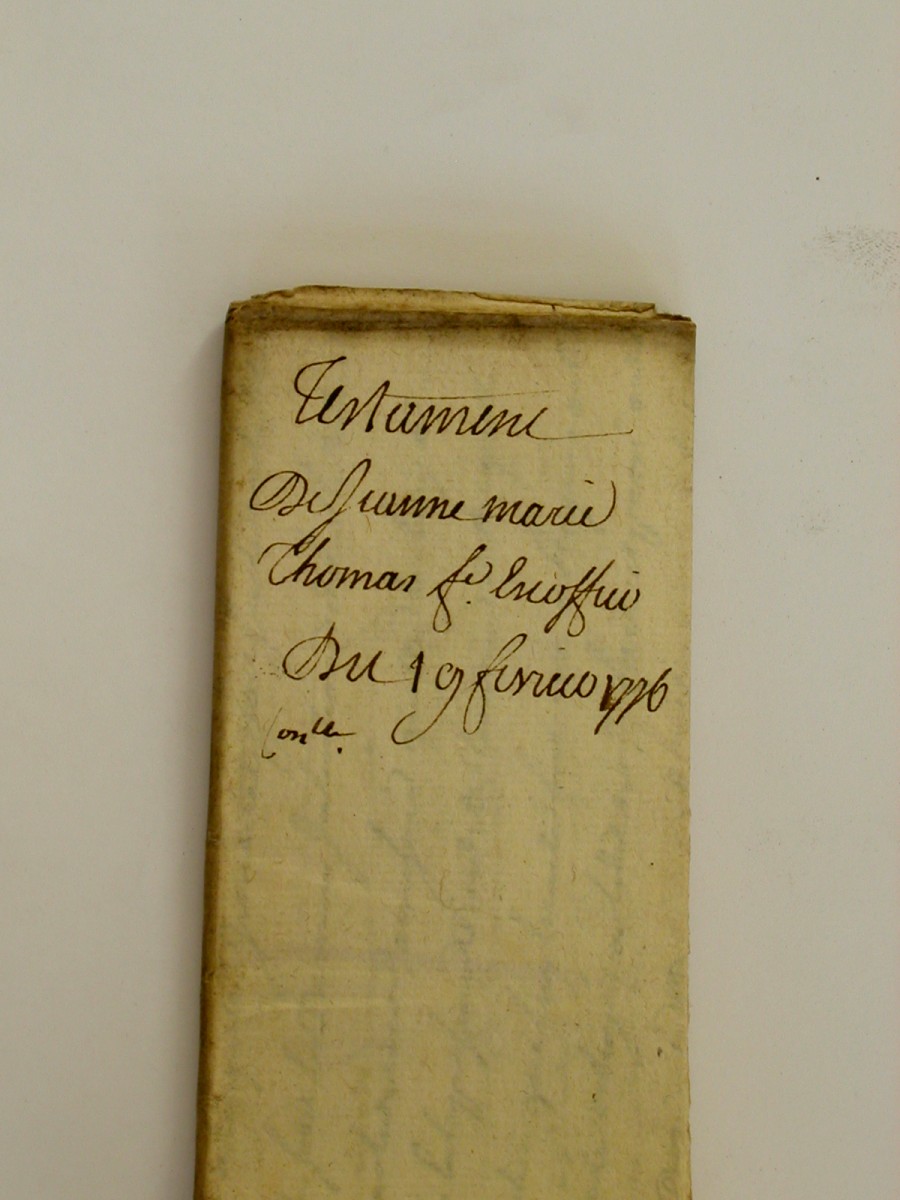 Testament
De Jeanne marie
Thomas fe. Escoffier
Du 19 fevrier 1776